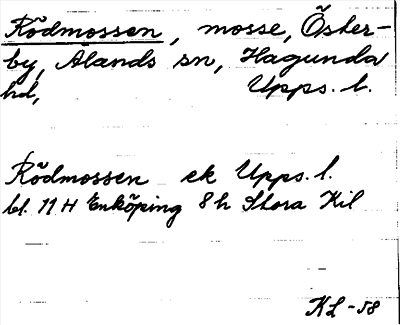 Rödmossen, mosse, Öster-
by, Ålands sn, Hagunda
hd, Upps. l.
Rödmossen ek Upps. l.
bl. 11 H Enköping 8 h Stora Kil
KL-58